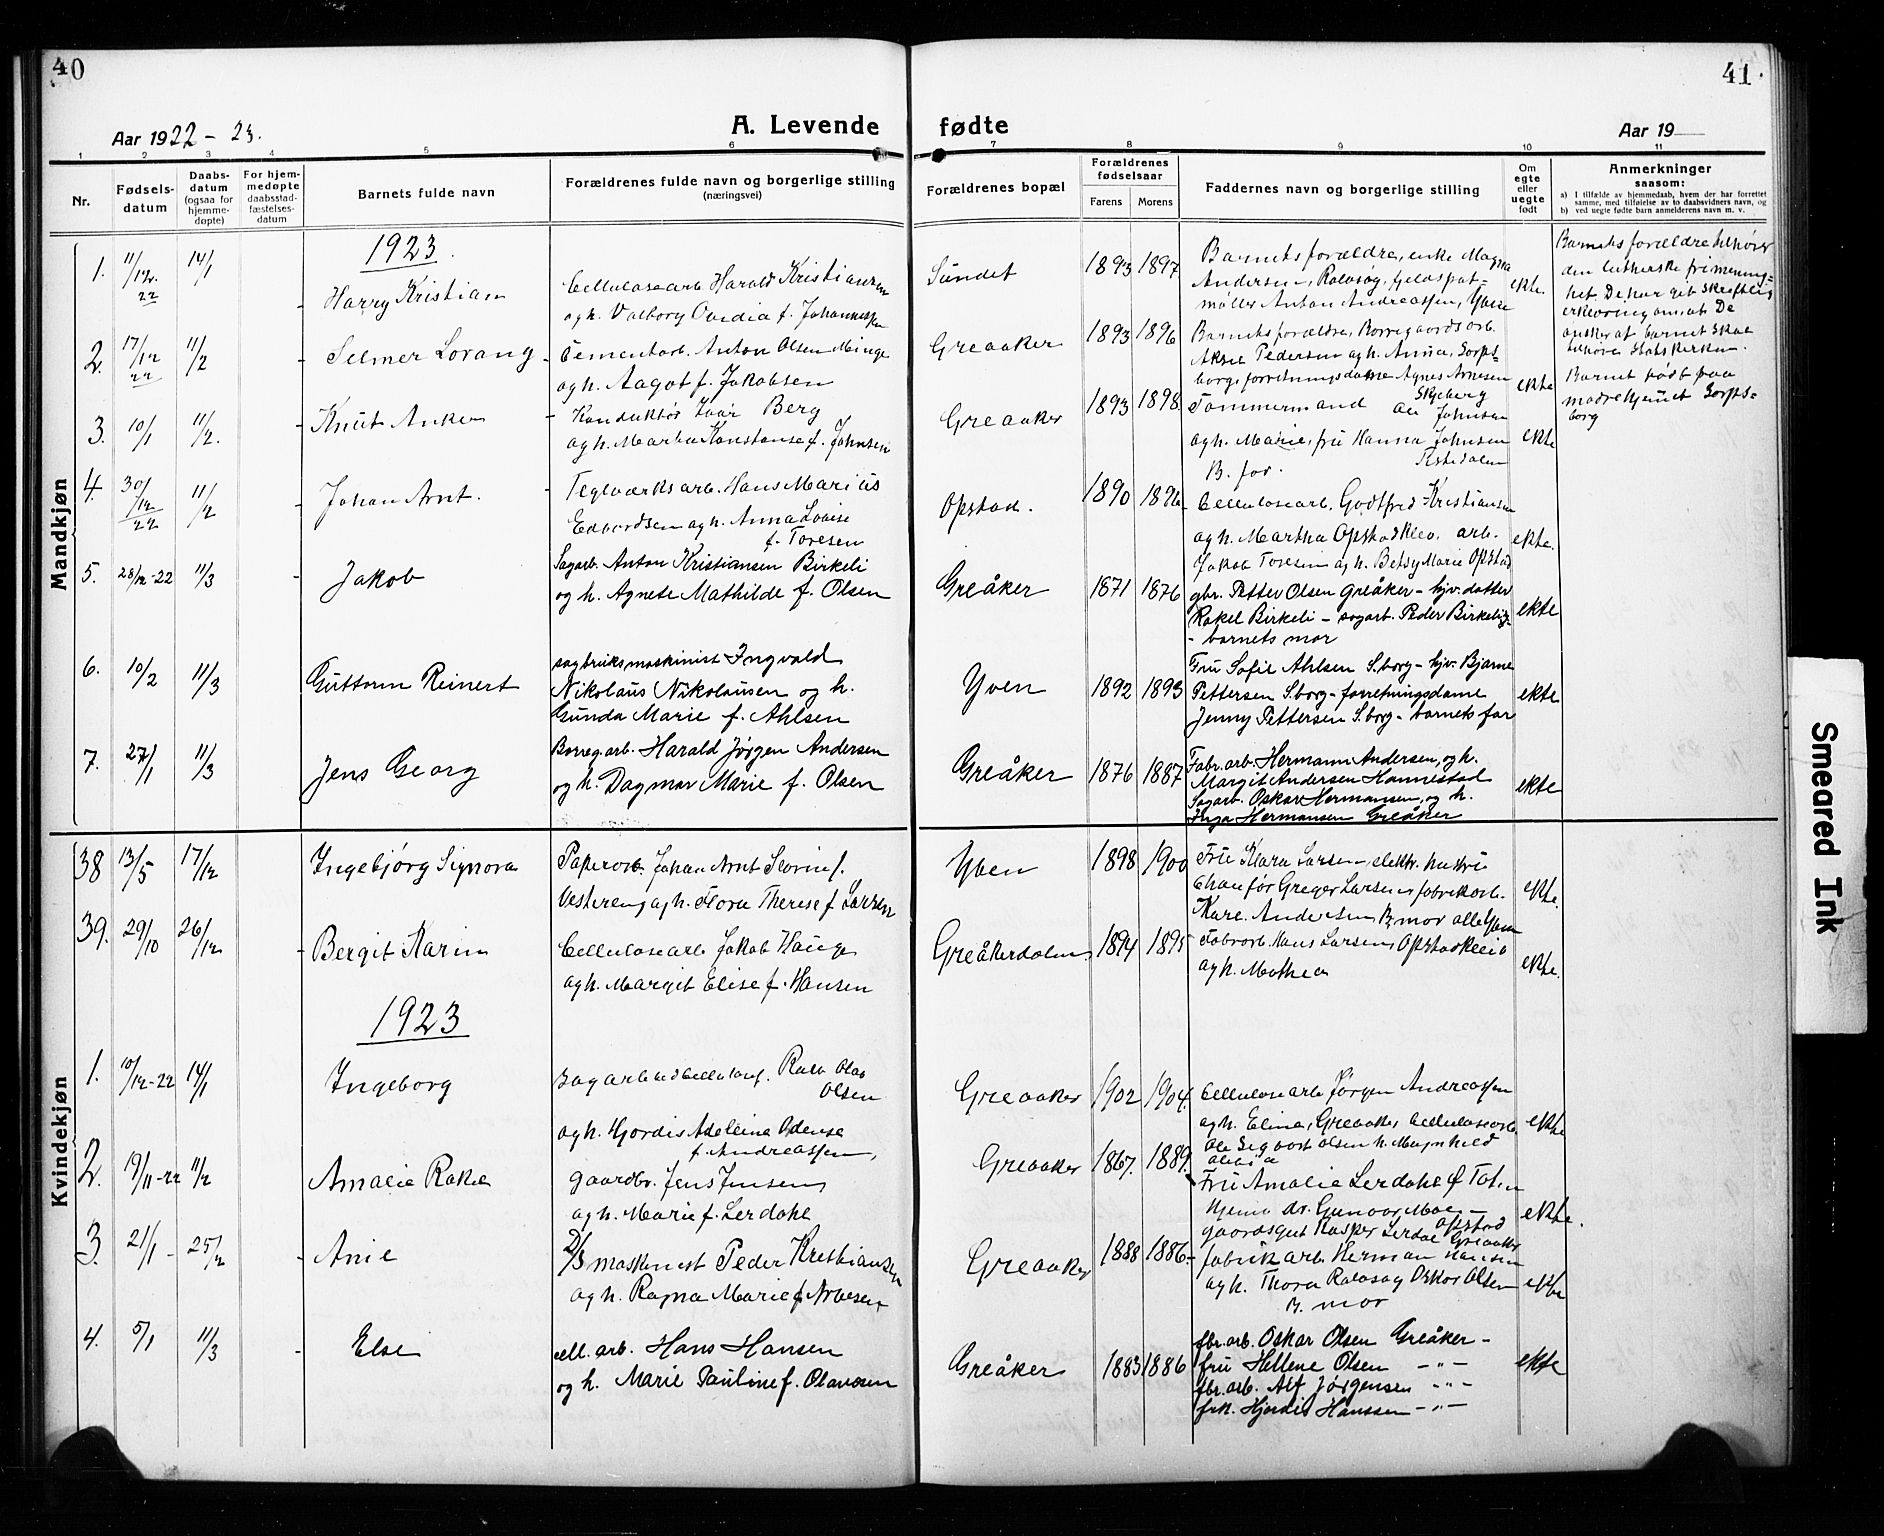 40
41
Aar 1922 - 23.
A. Levende fødte
Aar 19
1 2 3 4 5 6 7 8 9 10 11
Nr.
Fødsels-
datum
Daabs-
datum
(ogsaa for
hjemme-
døpte)
For hjem-
medøpte
daabsstad-
fæstelses-
datum
Barnets fulde navn
Forældrenes fulde navn og borgerlige stilling
(næringsvei)
Forældrenes bopæl
Forældrenes
fødselsaar
Farens Morens
Faddernes navn og borgerlige stilling
Om
egte
eller
uegte
født
Anmerkninger
saasom:
a) I tilfælde av hjemmedaab, hvem der har forrettet
samme, med tilføielse av to daabsvidners navn, og
b) ved uegte fødte barn anmelderens navn m. v.
Mandkjøn
1923.
1. 11/12 22 14/1
Harry Kristian
Cellulosearb Harald Kristiansen
og h. Valborg Ovidia f. Johannessen
Sundet
1893 1897
Barnets forældre, enke Magna
Andersen, Rolvsøy,
møller Anton Andreassen, Yven
ekte.
Barnets forældre tilhører
den lutherske frimenig-
het. De har git skriftlig
erklæring om, at De
ønsker at barnet skal
tilhøre Statskirken.
2. 17/12 22 11/2
Selmer Lorang
Cementarb. Anton Olsen Minge
og h. Aagot f. Jakobsen
Greaaker
1893 1896
Barnets forældre, Borregaardsarb.
Aksel Pedersen og h. Anna, Sarps-
borg, forretningsdame Agnes Arnesen
Skjeberg
ekte
Barnet født paa
mødrehjemmet Sarps-
borg
3. 10/1 11/2.
Knut Anker
Konduktør Ivar Berg
og h. Martha Konstanse f. Johnsen
Greaaker
1893 1898.
Tømmermand Johnsen
og h. Marie, fru Hanna Johnsen
Tistedalen
B. far.
ekte
4. 30/12 22 11/2
Johan Arnt.
Teglverksarb. Hans Marius
Edvardsen og h. Anna Lovise
f. Toresen
Opstad.
1890 1896
Cellulosearb. Godtfred Kristiansen
og h. Martha Opstadkleiv. arb.
Jakob Toresen og h. Betsy Marie Opstad
ekte.
5. 28/12-22 11/3
Jakob
Sagarb. Anton Kristiansen Birkeli
og h. Agnete Mathilde f. Olsen
Greåker
1871 1876
gbr. Petter Olsen Greåker - hjv. datter
Rakel Birkeli - sagarb. Peder Birkeli
- barnets mor
ekte
6. 10/2 11/3
Guttorm Reinert
sagbruksmaskinist Ingvald
Nikolaus Nikolausen og h.
Gunda Marie f. Ahlsen
Yven
1892 1893
Fru Sofie Ahlsen S.borg - hjv. Bjarne
Pettersen S.borg - forretningsdame
Jenny Pettersen S.borg - barnets far
ekte
7. 27/1 11/3
Jens Georg
Borreg.arb. Harald Jørgen Andersen
og h. Dagmar Marie f. Olsen
Greåker
1876 1887
Fabr.arb. Hermann Andersen, og h.
Margit Andersen Hannestad
Sagarb. Oskar Hermansen, og h.
Inga Hermansen Greåker
ekte
Kvindekjøn
38 13/5 17/12
Ingebjørg Signora
Papirarb. Johan Arnt
Vestereng og h. Flora Therese f. Larsen
Yven
1898 1900
Fru Klara Larsen, elektr. hustru
Chauffør Greger Larsens fabrikarb.
Kare. Andersen B. mor alle Yven
ekte.
39. 29/10 26/12
Bergit Karin
Cellulosearb Jakob Hauge
og h. Margit Elise f. Hansen
Greåkerdalen
1894 1895
Fabrarb. Hans Larsen, Opstadkleiv
og h. Mathea
ekte.
1923
1. 10/12-22 14/1
Ingeborg
Sagarb ved Cellulosef. Rolv Olav
Olsen
og h. Hjordis Adeleine Odense
f. Andreassen,
Greaaker
1902 1904.
Cellulosearb Jørgen Andreassen
og h. Elina, Greaaker, Cellulosearb.
Ole Sigvart Olsen h. Magnhild
ekte
2. 19/11-22 11/2
Amalie Rakel
Gaardbr. Jens Jensen
og h. Marie f. Lerdahl
Greaaker
1867. 1889.
Fru Amalie Lerdahl f Toten
Hjemmedr. Gunvor Moe -
Opstad
gaardsgut Kasper Lerdal Greaaker
ekte.
3. 21/1 - 25/2
Anie
Maskinist Peder Kristiansen
og h. Ragna Marie f Arvesen
Greaaker
1888 1886-
fabrikarb. Herman Hansen
og h. Thora Rolvsøy Oskar Olsen
B. mor
ekte
4. 5/1 11/3
Else
cell. arb. Hans Hansen
og h. Marie Pauline f. Olavesen
Greåker
1883 1886
fbr. arb. Oskar Olsen Greåker -
fru Hellene Olsen - " -
fbr. arb. Alf Jørgensen - " -
frk. Hjordis Hanssen - " -
ekte
Smeared Ink